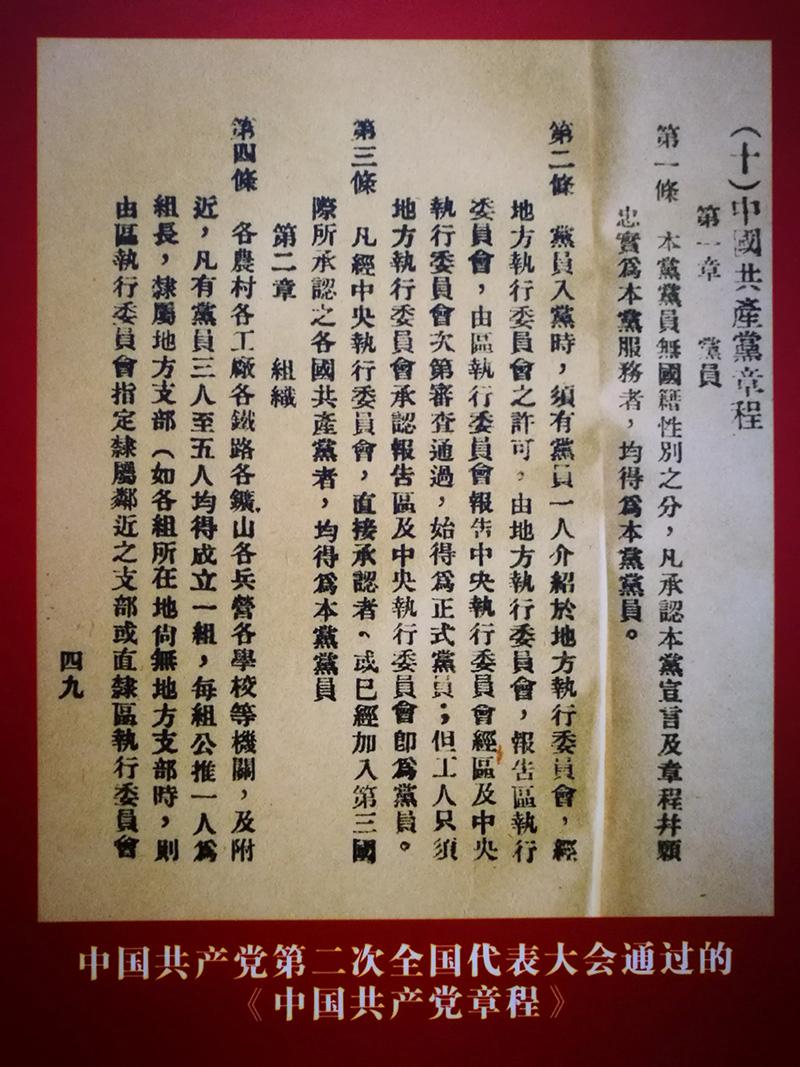 (十)中國共產黨章程
第一章　黨員
第一條　本黨黨員無國籍性別之分，凡承認本黨宣言及章程并願
忠實爲本黨服務者，均得爲本黨黨員。
第二條　黨員入黨時，須有黨員一人介紹於地方執行委員會，經
地方執行委員會之許可，由地方執行委員會，報告區執行
委員會，由區執行委員會報告中央執行委員會經區及中央
執行委員會次第審查通過，始得爲正式黨員；但工人只須
地方執行委員會承認報告區及中央執行委員會卽爲黨員。
第三條　凡經中央執行委員會，直接承認者、或已經加入第三國
際所承認之各國共產黨者，均得爲本黨黨員
第二章　組織
第四條　各農村各工廠各鐵路各鑛山各兵營各學校等機關，及附
近，凡有黨員三人至五人均得成立一組，每組公推一人爲
組長，隸屬地方支部（如各組所在地尙無地方支部時，則
由區執行委員會指定隸屬鄰近之支部或直隸區執行委員會
四九
中国共产党第二次全国代表大会通过的
《中国共产党章程》